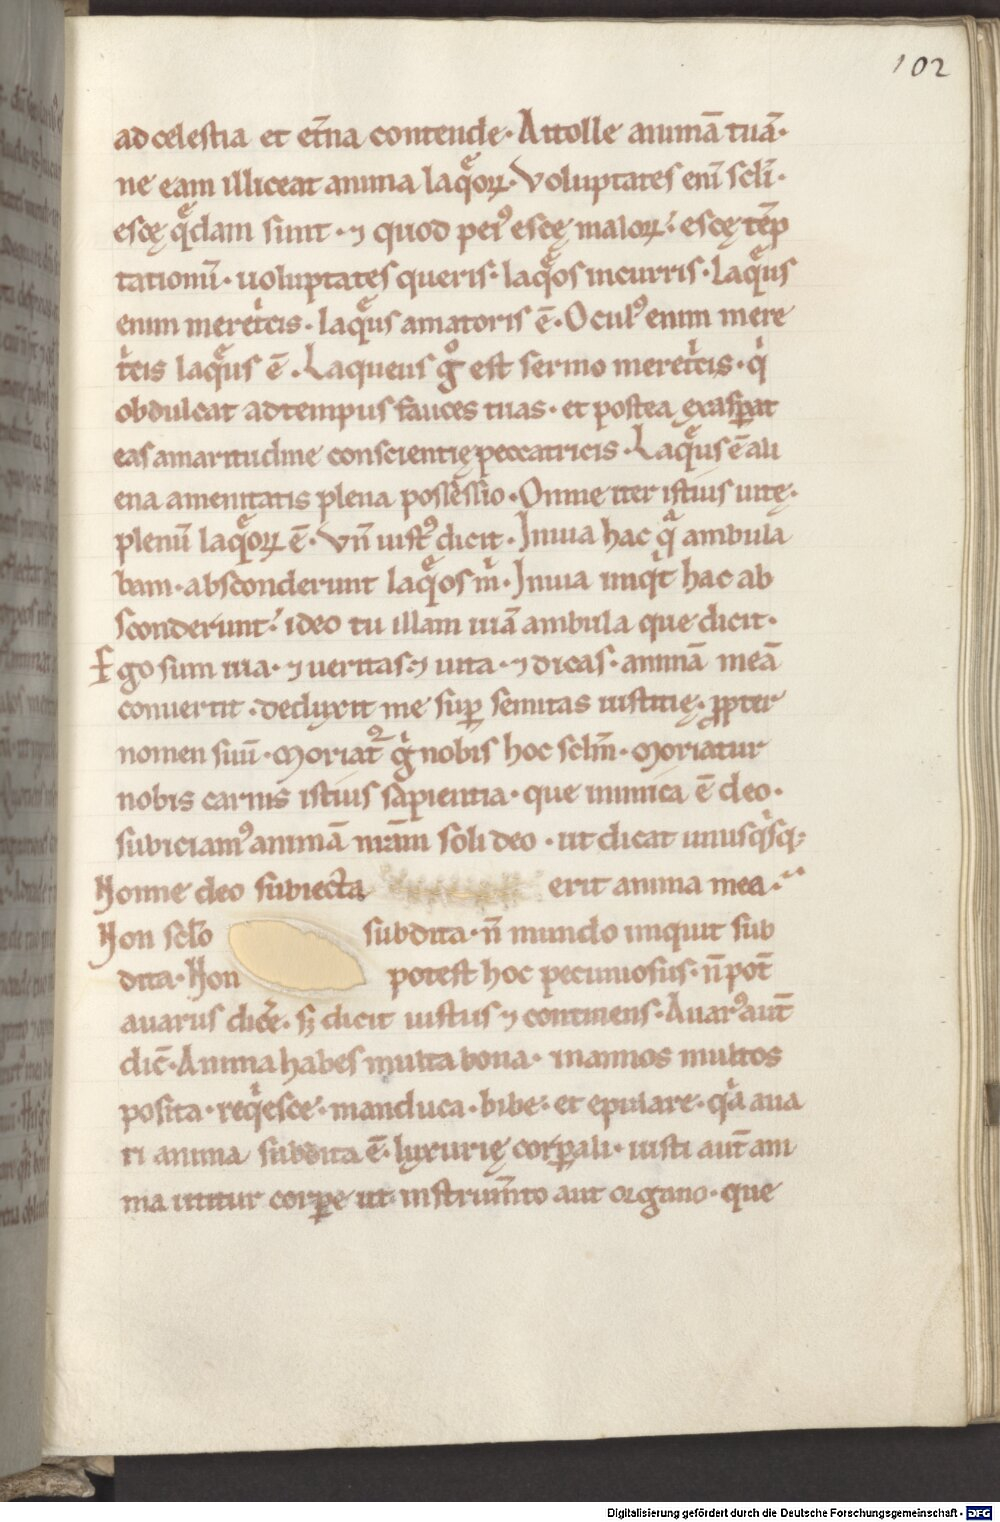 102
ad celestia et et̄na contende· Attolle animā tuā·
ne eam illiceat anima laqͤoꝝ· Voluptates enī scl̄i·
escę qͤdam sunt· ⁊ quod pei᷒ escę maloꝝ· escę tēp
tationū· uoluptates queris· laqͤos incurris· Laqͤus
enim meretͥcis· laqͤus amatoris ē· Ocul᷒ enim mere
tͥcis laqͤus ē· Laqueus gͦ est sermo meretͥcis· qͥ
obdulcat ad tempus fauces tuas· et postea exasꝑat
eas amaritudine conscientię peccatricis· Laqͤus ē ali
ena amenitatis plena possessio· Omne iter istius uitę·
plenū laqͤoꝝ ē· Vn̄ iust᷒ dicit· In uia hac qͣ ambula
bam· absconderunt laqͤos mͥ· In uia inqͥt hac ab
sconderunt· ideo tu illam uiā ambula que dicit·
Ego sum uia· ⁊ ueritas· ⁊ uita· ⁊ dicas· animā meā
conuertit· deduxit me suꝑ semitas iustitię· ꝓpter
nomen suū· Moriat᷑ gͥ nobis hoc sclm̄· Moriatur
nobis carnis istius sapientia· que inimica ē deo·
subiciam᷒ animā nr̄am soli deo· ut dicat unusqͥsq;
Nonne deo subiecta erit anima mea·
Non sclo subdita· n̄ mundo inquit sub
dita· Non potest hoc pecuniosus· n̄ pot̄
auarus dicer̄e· sꝫ dicit iustus ⁊ continens· Auar᷒ aut̄
dic̄· Anima habes multa bona· in annos multos
posita· reqͥesce· manduca· bibe· et epulare· qͥa aua
ri anima subdita ē· luxurię corꝑali· iusti aut̄ ani
ma utitur corꝑe ut instrum̄to aut organo· que
Digitalisierung gefördert durch die Deutsche Forschungsgemeinschaft - DFG